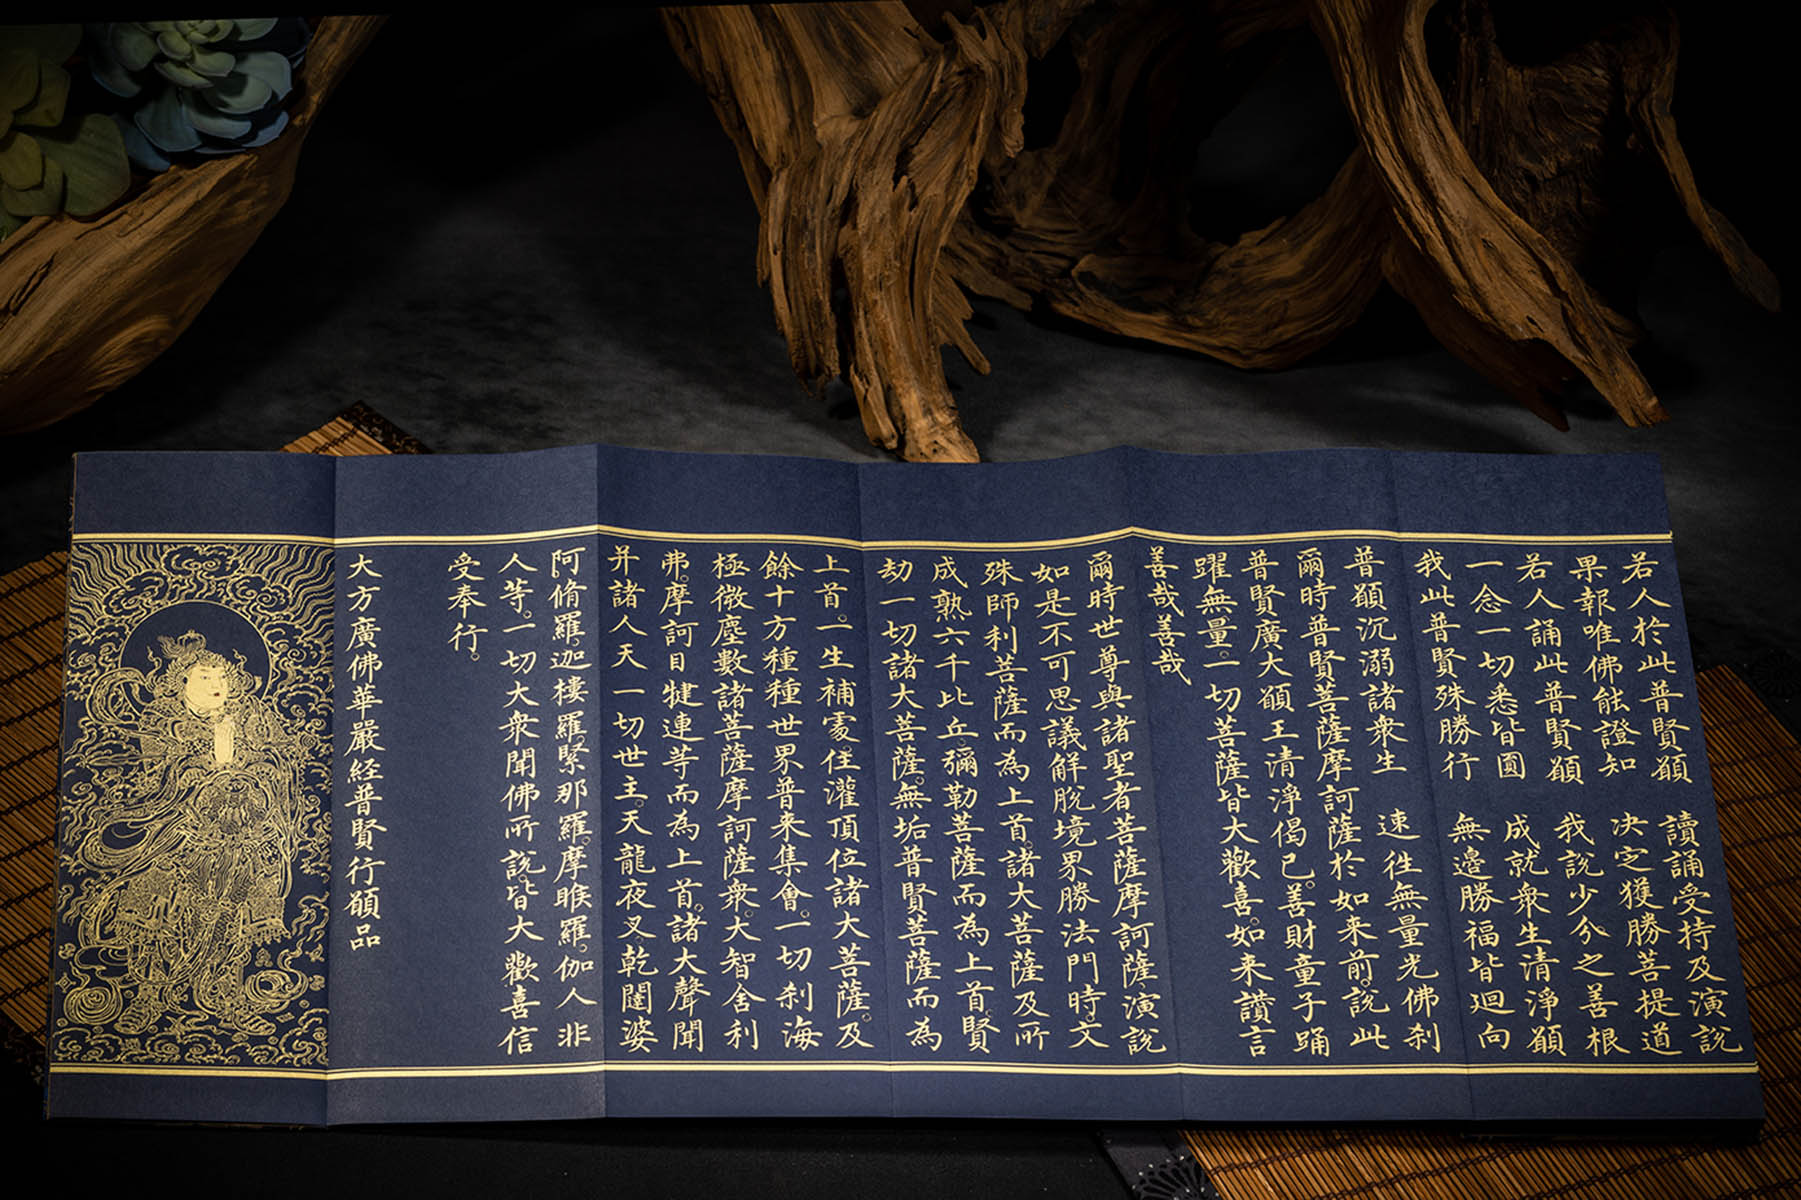 若人於此普賢願　讀誦受持及演說
果報唯佛能證知　決定獲勝菩提道
若人誦此普賢願　我說少分之善根
一念一切悉皆圓　成就衆生清淨願
我此普賢殊勝行　無邊勝福皆迴向
普願沉溺諸衆生　速往無量光佛刹
爾時普賢菩薩摩訶薩於如來前。說此
普賢廣大願王清淨偈已。善財童子踊
躍無量。一切菩薩皆大歡喜。如來讚言
善哉善哉
爾時世尊與諸聖者菩薩摩訶薩。演說
如是不可思議解脫境界勝法門時。文
殊師利菩薩而為上首。諸大菩薩及所
成熟六千比丘。彌勒菩薩而為上首。賢
劫一切諸大菩薩。無垢普賢菩薩而為
上首。一生補處。住灌頂位諸大菩薩。及
餘十方種種世界普來集會。一切刹海
極微塵數諸菩薩摩訶薩衆。大智舍利
弗。摩訶目犍連等而為上首。諸大聲聞
并諸人天一切世主。天龍夜叉乾闥婆
阿脩羅。迦樓羅緊那羅。摩睺羅。伽人非
人等。一切大衆聞佛所說。皆大歡喜信
受奉行。
大方廣佛華嚴経普賢行願品